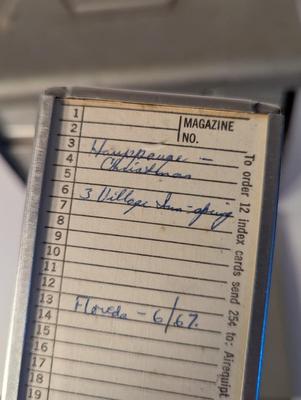 1
2
MAGAZINE
NO.
3
4 Hauppauge -
5 Christmas
6 3 Village Inn-spring
7
8
9
10
11
12
13 Florida - 6/67.
14
15
16
17
18
19
To order 12 index cards send 25¢ to: Airequipt